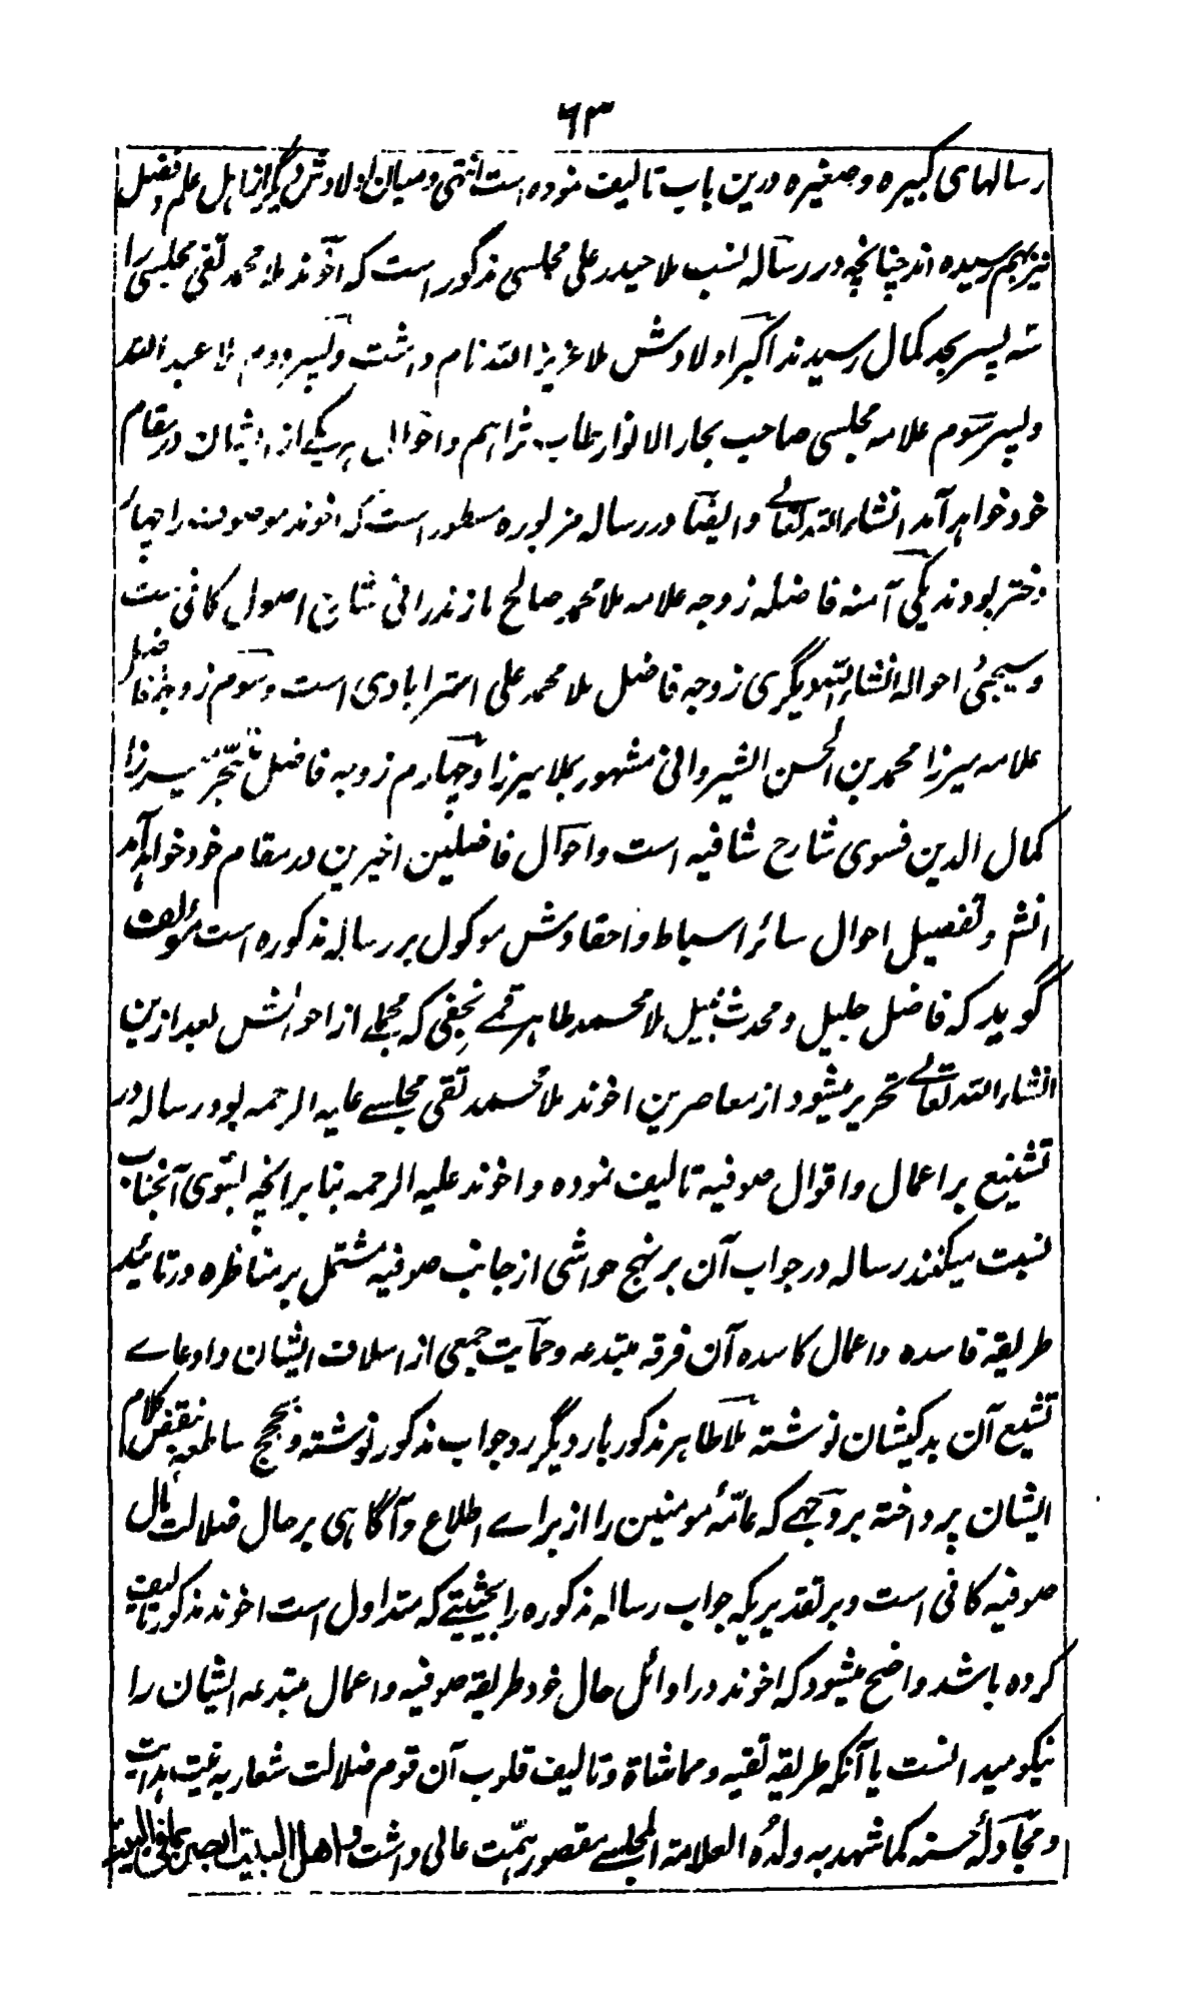 ۶۳
رسالهای کبیره و صغیره درین باب تالیف نموده است انتهی و میان اولادش دیگر از اهل علم و فضل
نیز بهم رسیده اند چنانچه در رساله نسب ملا حیدر علی مجلسی مذکور است که اخوند ملا محمد تقی مجلسی را
سه پسر بحد کمال رسیدند اکبر اولادش ملا عزیز الله نام داشت و پسر دوم ملا عبد الله
و پسر سوم علامه مجلسی صاحب بحار الانوار طاب ثراهم و احوال هر یکے از ایشان در مقام
خود خواهد آمد انشاء الله تعالے و ایضا در رساله مزبوره مسطور است که اخوند موصوف را چهار
دختر بودند یکی آمنه فاضله زوجه علامه ملا محمد صالح مازندرانی شارح اصول کافی ست
و سیجئ احواله انشاء الله و دیگری زوجه فاضل ملا محمد علی استرابادی است و سوم زوجه فاضل
علامه میرزا محمد بن الحسن الشیروانی مشهور بملا میرزا و چهارم زوجه فاضل متبحر میرزا
کمال الدین فسوی شارح شافیه است و احوال فاضلین اخیرین در مقام خود خواهد آمد
انشم و تفصیل احوال سائر اسباط و احفادش موکول بر رساله مذکوره است مؤلف
گوید که فاضل جلیل و محدث نبیل ملا محمد طاهر قمے نجفی که مجملے از احوالش بعد ازین
انشاء الله تعالے تحریر میشود از معاصرین اخوند ملا محمد تقی مجلسے علیه الرحمه بود رساله در
تشنیع بر اعمال و اقوال صوفیه تالیف نموده و اخوند علیه الرحمه بنا بر انچه بسوی آنجناب
نسبت میکنند رساله در جواب آن بر نهج حواشی از جانب صوفیه مشتمل بر مناظره در تائید
طریقه فاسده و اعمال کاسده آن فرقه مبتدعه و حمایت جمعی از اسلاف ایشان و ادعاے
تشیع آن بدکیشان نوشته ملا طاهر مذکور بار دیگر رد جواب مذکور نوشته و بحجج ساطعه بنقض کلام
ایشان پرداخته بر وجهے که عامّهٔ مومنین را از براے اطلاع و آگاهی بر حال ضلالت مآل
صوفیه کافی است و بر تقدیریکه جواب رساله مذکوره را بحیثیتے که متداول است اخوند مذکور تالیف
کرده باشد واضح میشود که اخوند در اوائل حال خود طریقه صوفیه و اعمال مبتدعه ایشان را
نیکو میدانست یا آنکه طریقه تقیه و مماشاة و تالیف قلوب آن قوم ضلالت شعار به نیت هدایت
و مجادلهٔ حسنه کما شهد به ولده العلامة المجلسے مقصور همّت عالی داشت و اهل البیت ابصر بما فی البیت